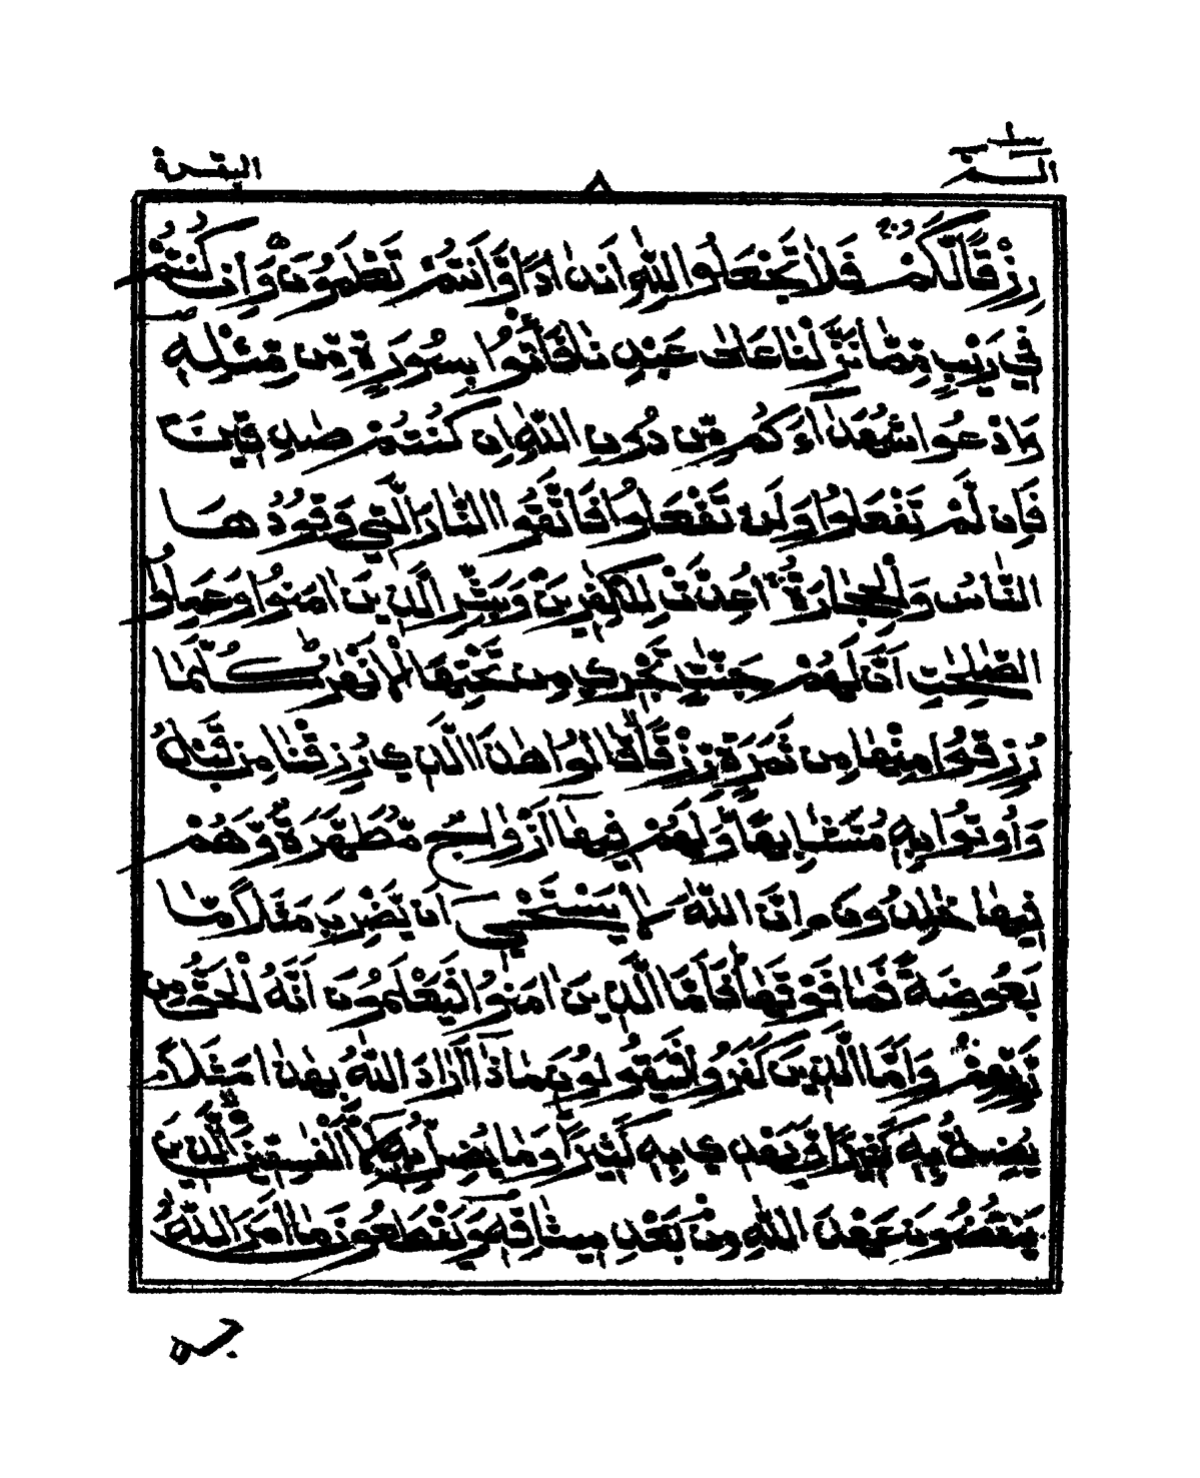 الٓمٓ
٨
البقرة
رِزْقًا لَّكُمْ فَلَا تَجْعَلُوا لِلّٰهِ اَنْدَادًا وَّاَنْتُمْ تَعْلَمُوْنَ وَاِنْ كُنْتُمْ
فِيْ رَيْبٍ مِّمَّا نَزَّلْنَا عَلٰى عَبْدِنَا فَأْتُوْا بِسُوْرَةٍ مِّنْ مِّثْلِهٖ
وَادْعُوْا شُهَدَآءَكُمْ مِّنْ دُوْنِ اللّٰهِ اِنْ كُنْتُمْ صٰدِقِيْنَ
فَاِنْ لَّمْ تَفْعَلُوْا وَلَنْ تَفْعَلُوْا فَاتَّقُوا النَّارَ الَّتِيْ وَقُوْدُهَا
النَّاسُ وَالْحِجَارَةُ اُعِدَّتْ لِلْكٰفِرِيْنَ وَبَشِّرِ الَّذِيْنَ اٰمَنُوْا وَعَمِلُوا
الصّٰلِحٰتِ اَنَّ لَهُمْ جَنّٰتٍ تَجْرِيْ مِنْ تَحْتِهَا الْاَنْهٰرُ كُلَّمَا
رُزِقُوْا مِنْهَا مِنْ ثَمَرَةٍ رِّزْقًا قَالُوْا هٰذَا الَّذِيْ رُزِقْنَا مِنْ قَبْلُ
وَاُتُوْا بِهٖ مُتَشَابِهًا وَلَهُمْ فِيْهَا اَزْوَاجٌ مُّطَهَّرَةٌ وَّهُمْ
فِيْهَا خٰلِدُوْنَ اِنَّ اللّٰهَ لَا يَسْتَحْيٖ اَنْ يَّضْرِبَ مَثَلًا مَّا
بَعُوْضَةً فَمَا فَوْقَهَا فَاَمَّا الَّذِيْنَ اٰمَنُوْا فَيَعْلَمُوْنَ اَنَّهُ الْحَقُّ مِنْ
رَّبِّهِمْ وَاَمَّا الَّذِيْنَ كَفَرُوْا فَيَقُوْلُوْنَ مَاذَا اَرَادَ اللّٰهُ بِهٰذَا مَثَلًا
يُضِلُّ بِهٖ كَثِيْرًا وَّيَهْدِيْ بِهٖ كَثِيْرًا وَمَا يُضِلُّ بِهٖ اِلَّا الْفٰسِقِيْنَ الَّذِيْنَ
يَنْقُضُوْنَ عَهْدَ اللّٰهِ مِنْ بَعْدِ مِيْثَاقِهٖ وَيَقْطَعُوْنَ مَا اَمَرَ اللّٰهُ
بِهٖ